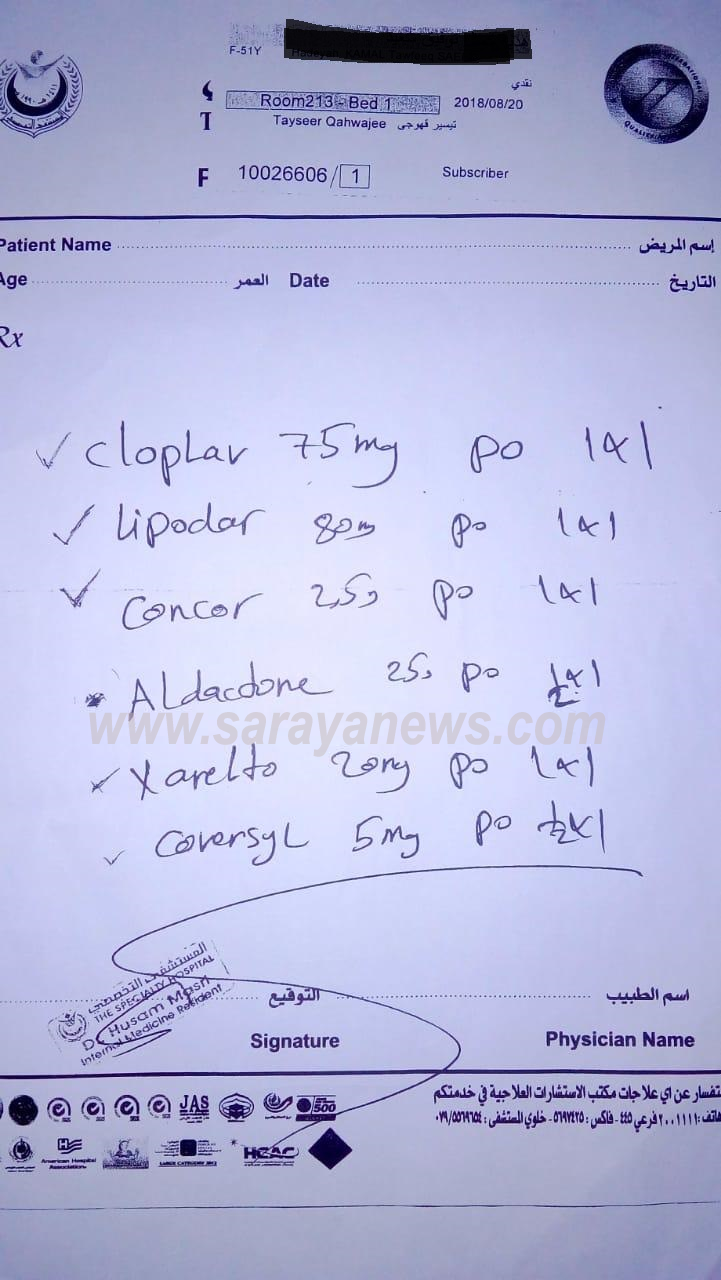 F-51Y
نقدي
Room213 - Bed 1
2018/08/20
Tayseer Qahwajee تيسير قهوجي
F 10026606/1 Subscriber
Patient Name إسم المريض
Age العمر Date التاريخ
Rx
Cloplav 75mg po 1x1
Lipodar 80m po 1x1
Concor 2,5, po 1x1
Aldacdone 25, po ½x1
www.sarayanews.com
Xarelto 20mg po 1x1
Coversyl 5mg po ½x1
المستشفى التخصصي
THE SPECIALTY HOSPITAL
Dr. Husam Masri
Internal Medicine Resident
التوقيع اسم الطبيب
Signature Physician Name
تفسار عن اي علاجات مكتب الاستشارات العلاجية في خدمتكم
هاتف: ٢٠٠١١١١ فرعي ٤٤٥ - فاكس: ٥٦٩٧٤٢٥ - خلوي المستشفى: ٠٧٩/٥٥٦٩٦٥٤
JAS
500
American Hospital
Association
HCAC